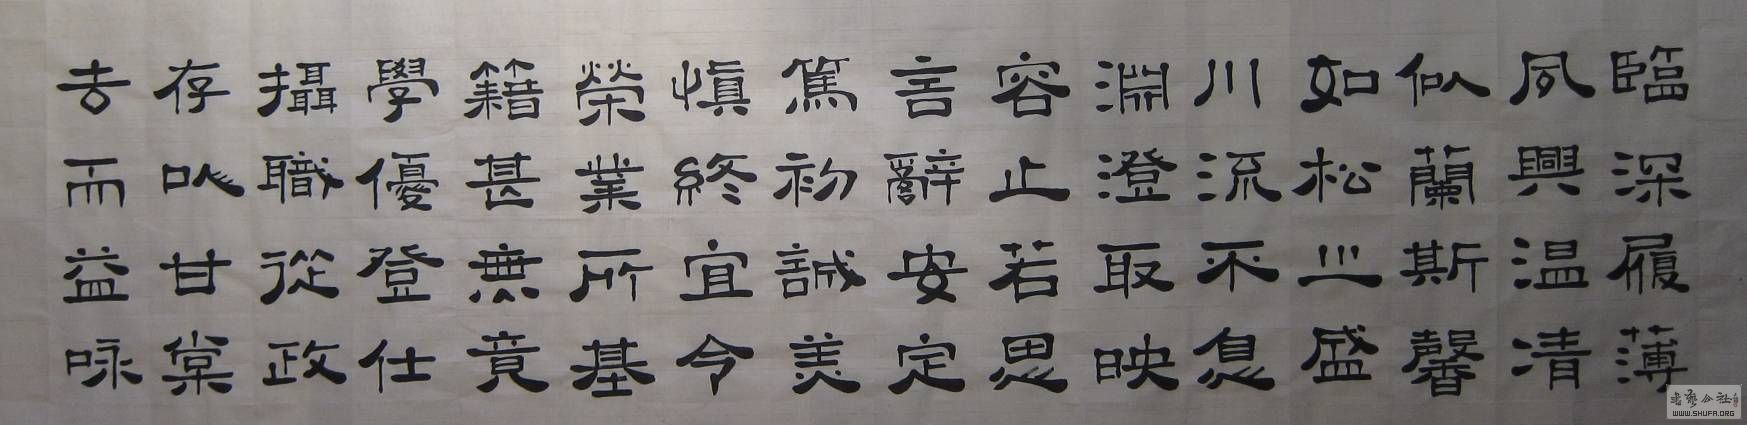 臨深履薄
夙興温凊
似蘭斯馨
如松之盛
川流不息
淵澄取映
容止若思
言辭安定
篤初誠美
慎終宜令
榮業所基
籍甚無竟
學優登仕
攝職從政
存以甘棠
去而益咏
WWW.SHUFA.ORG